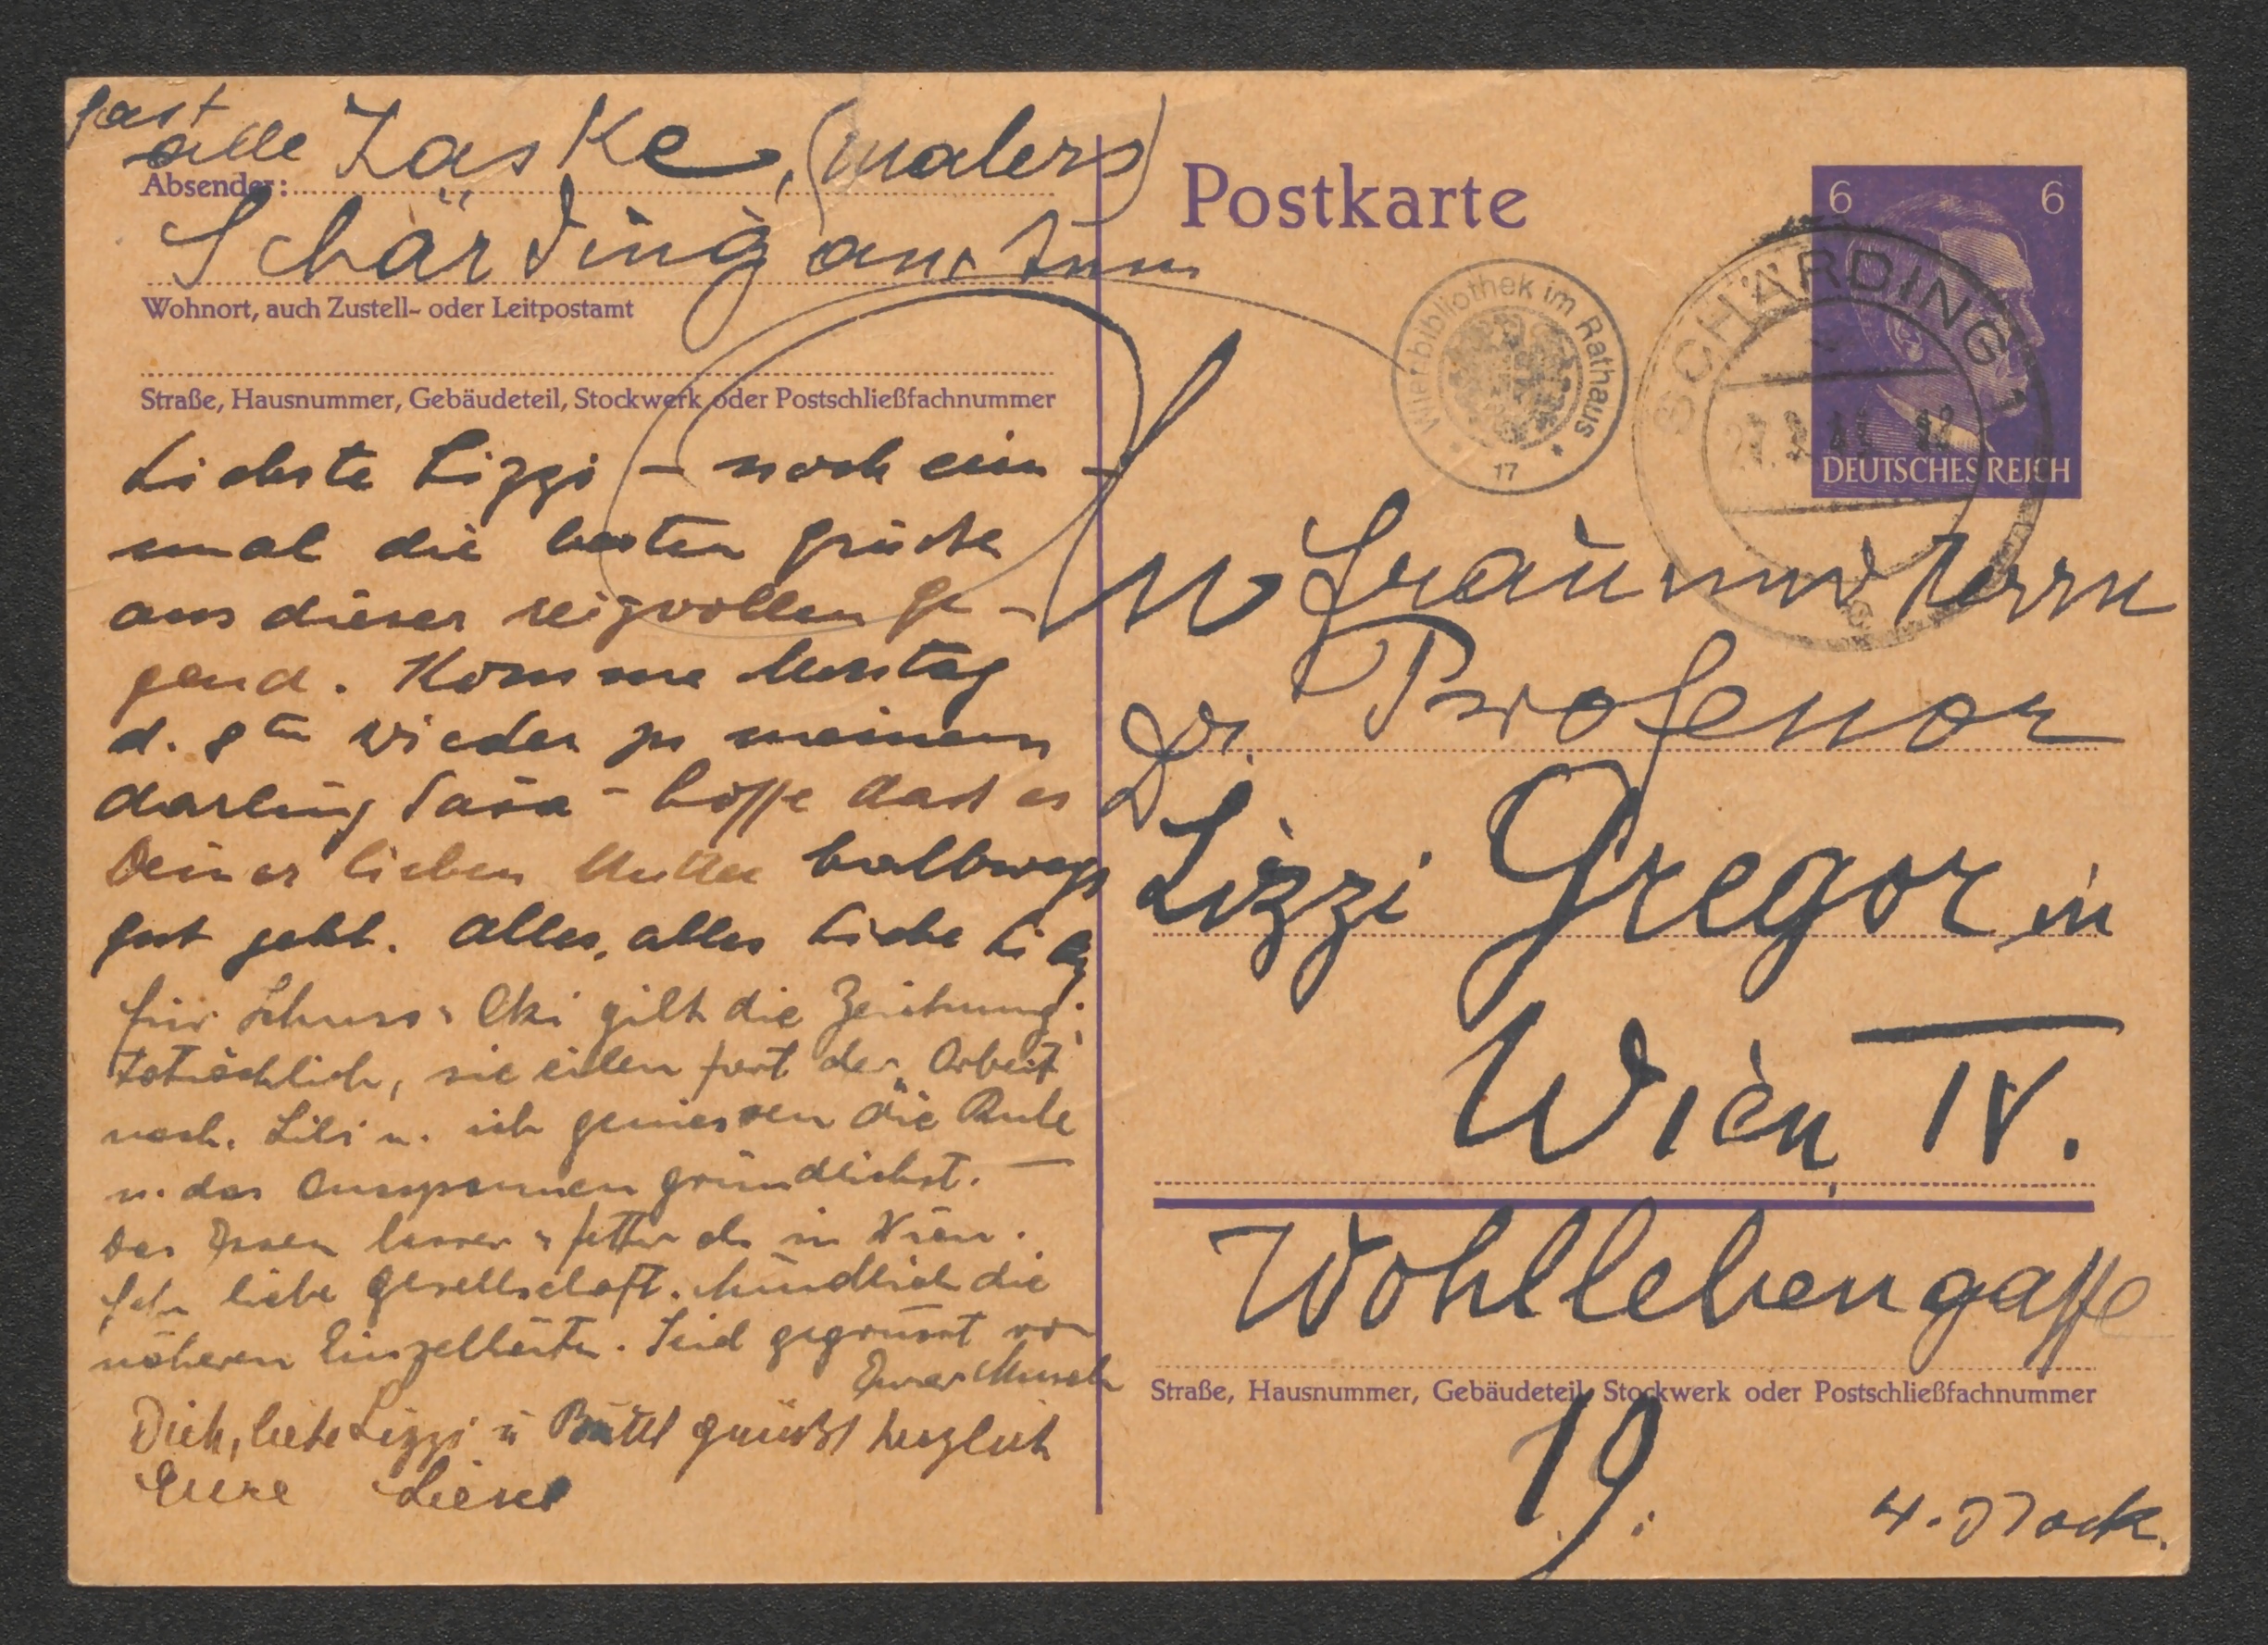 fast
alle Laske, (malers)
Absender:
Schärding am Inn
Wohnort, auch Zustell- oder Leitpostamt
Straße, Hausnummer, Gebäudeteil, Stockwerk oder Postschließfachnummer
Liebste Lizzi – noch ein-
mal die besten Grüsse
aus dieser reizvollen Ge-
gend. Komme Montag
d. 8ten wieder zu meinem
darling – hoffe dass es
Deiner lieben Mutter halbwegs
gut geht. Alles, alles Liebe
für gilt die Zeichnung
tatsächlich, sie eilen fort der Arbeit
nach. Lili u. ich geniessen die Ruhe
u. das Ausspannen gründlichst. –
Das Essen besser u. fetter als in Wien.
Sehr liebe Gesellschaft. Mündlich die
näheren Einzelheiten. Seid gegrüsst von
Eurer
Dich, liebe Lizzi u. grüßt herzlich
Eure Liesel
Postkarte
6 6
DEUTSCHES REICH
SCHÄRDING
Wienbibliothek im Rathaus
17
Frau und Herrn
Dr. Professor
Lizzi Gregor in
Wien IV.
Wohllebengasse
Straße, Hausnummer, Gebäudeteil, Stockwerk oder Postschließfachnummer
19.
4. Stock.